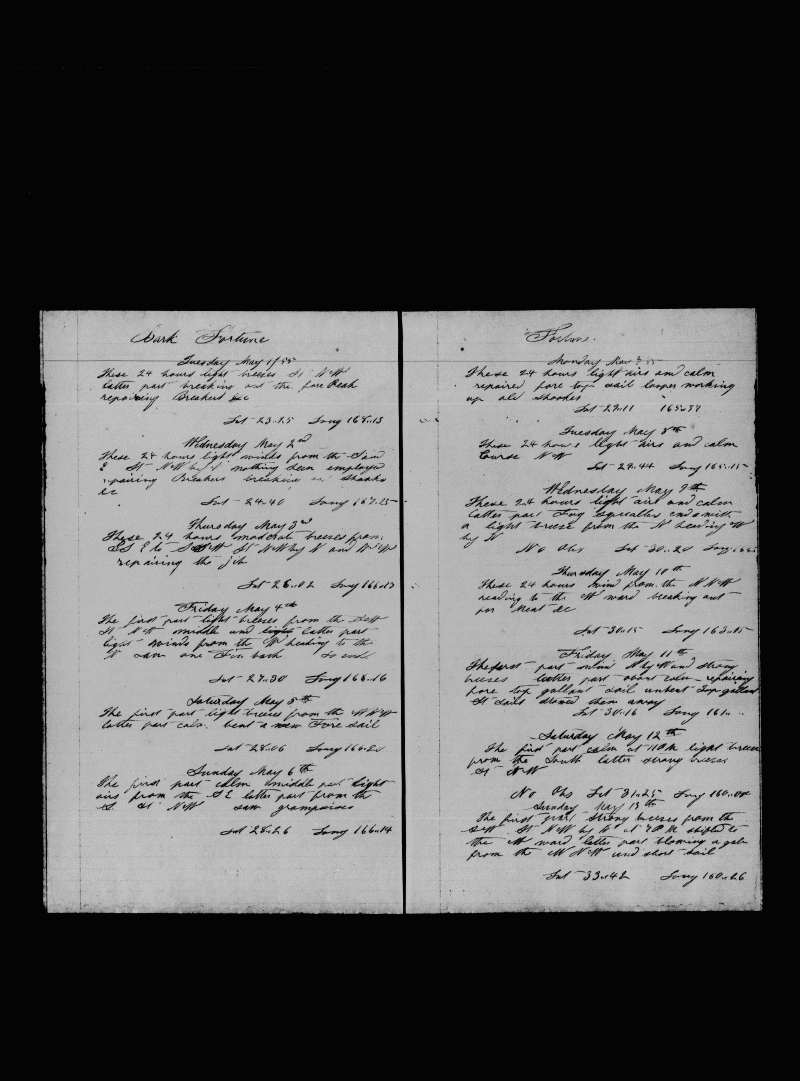 Bark Fortune
Tuesday May 1/55
These 24 hours light breeses St N W
latter part breaking out the fore Peak
repairing Breakers &c
Lat 23..25 Long 168..13
Wednesday May 2nd
These 24 hours light winds from the
E St NW by nothing seen employed
repairing Breakers breaking out Shooks
&c
Lat 24..40 Long 167..25
Thursday May 3rd
These 24 hours moderate breeses from
S S E to St NW by N and
repairing the jib
Lat 26..02 Long 166..13
Friday May 4th
The first part light breeses from the SW
St N W middle and light latter part
light winds from the W heading to the
N Saw one Fin back
Lat 27..30 Long 165..16
Saturday May 5th
The first part light breeses from the W N W
latter part calm bent a new Fore sail
Lat 28..06 Long
Sunday May 6th
The first part calm middle part light
airs from the S E latter part from the
S St NW saw grampuises
Lat 28..26 Long 166..14
Fortune.
Monday May 7
These 24 hours light airs and calm
repaired fore top sail looper working
up old Shooks
Lat 29..11 165..37
Tuesday May 8th
These 24 hours light airs and calm
Course N W
Lat 29..44 Long 165..15
Wednesday May 9th
These 24 hours light airs and calm
latter part Fog Squalley ends with
a light breeze from the N heading W
by N
No Obs Lat 30..20 Long
Thursday May 10th
These 24 hours wind from the N N W
heading to the W ward breaking out
for Meat &c
Lat 30..15 Long 163..15
Friday May 11th
The first part wind N by W and strong
breeses latter part about calm repairing
fore top gallant sail unbent Top gallant
St Sails stowed them away
Lat 30..16 Long 161..
Saturday May 12th
The first part calm at 11 AM light breese
from the South latter strong breeses
St N W
No Obs Lat 31..25 Long 160..04
Sunday May 13th
The first part strong breeses from the
SW St N W by W at 7 AM shifted to
the W ward latter part blowing a gale
from the W N W und short sail
Lat 33..42 Long 160..26